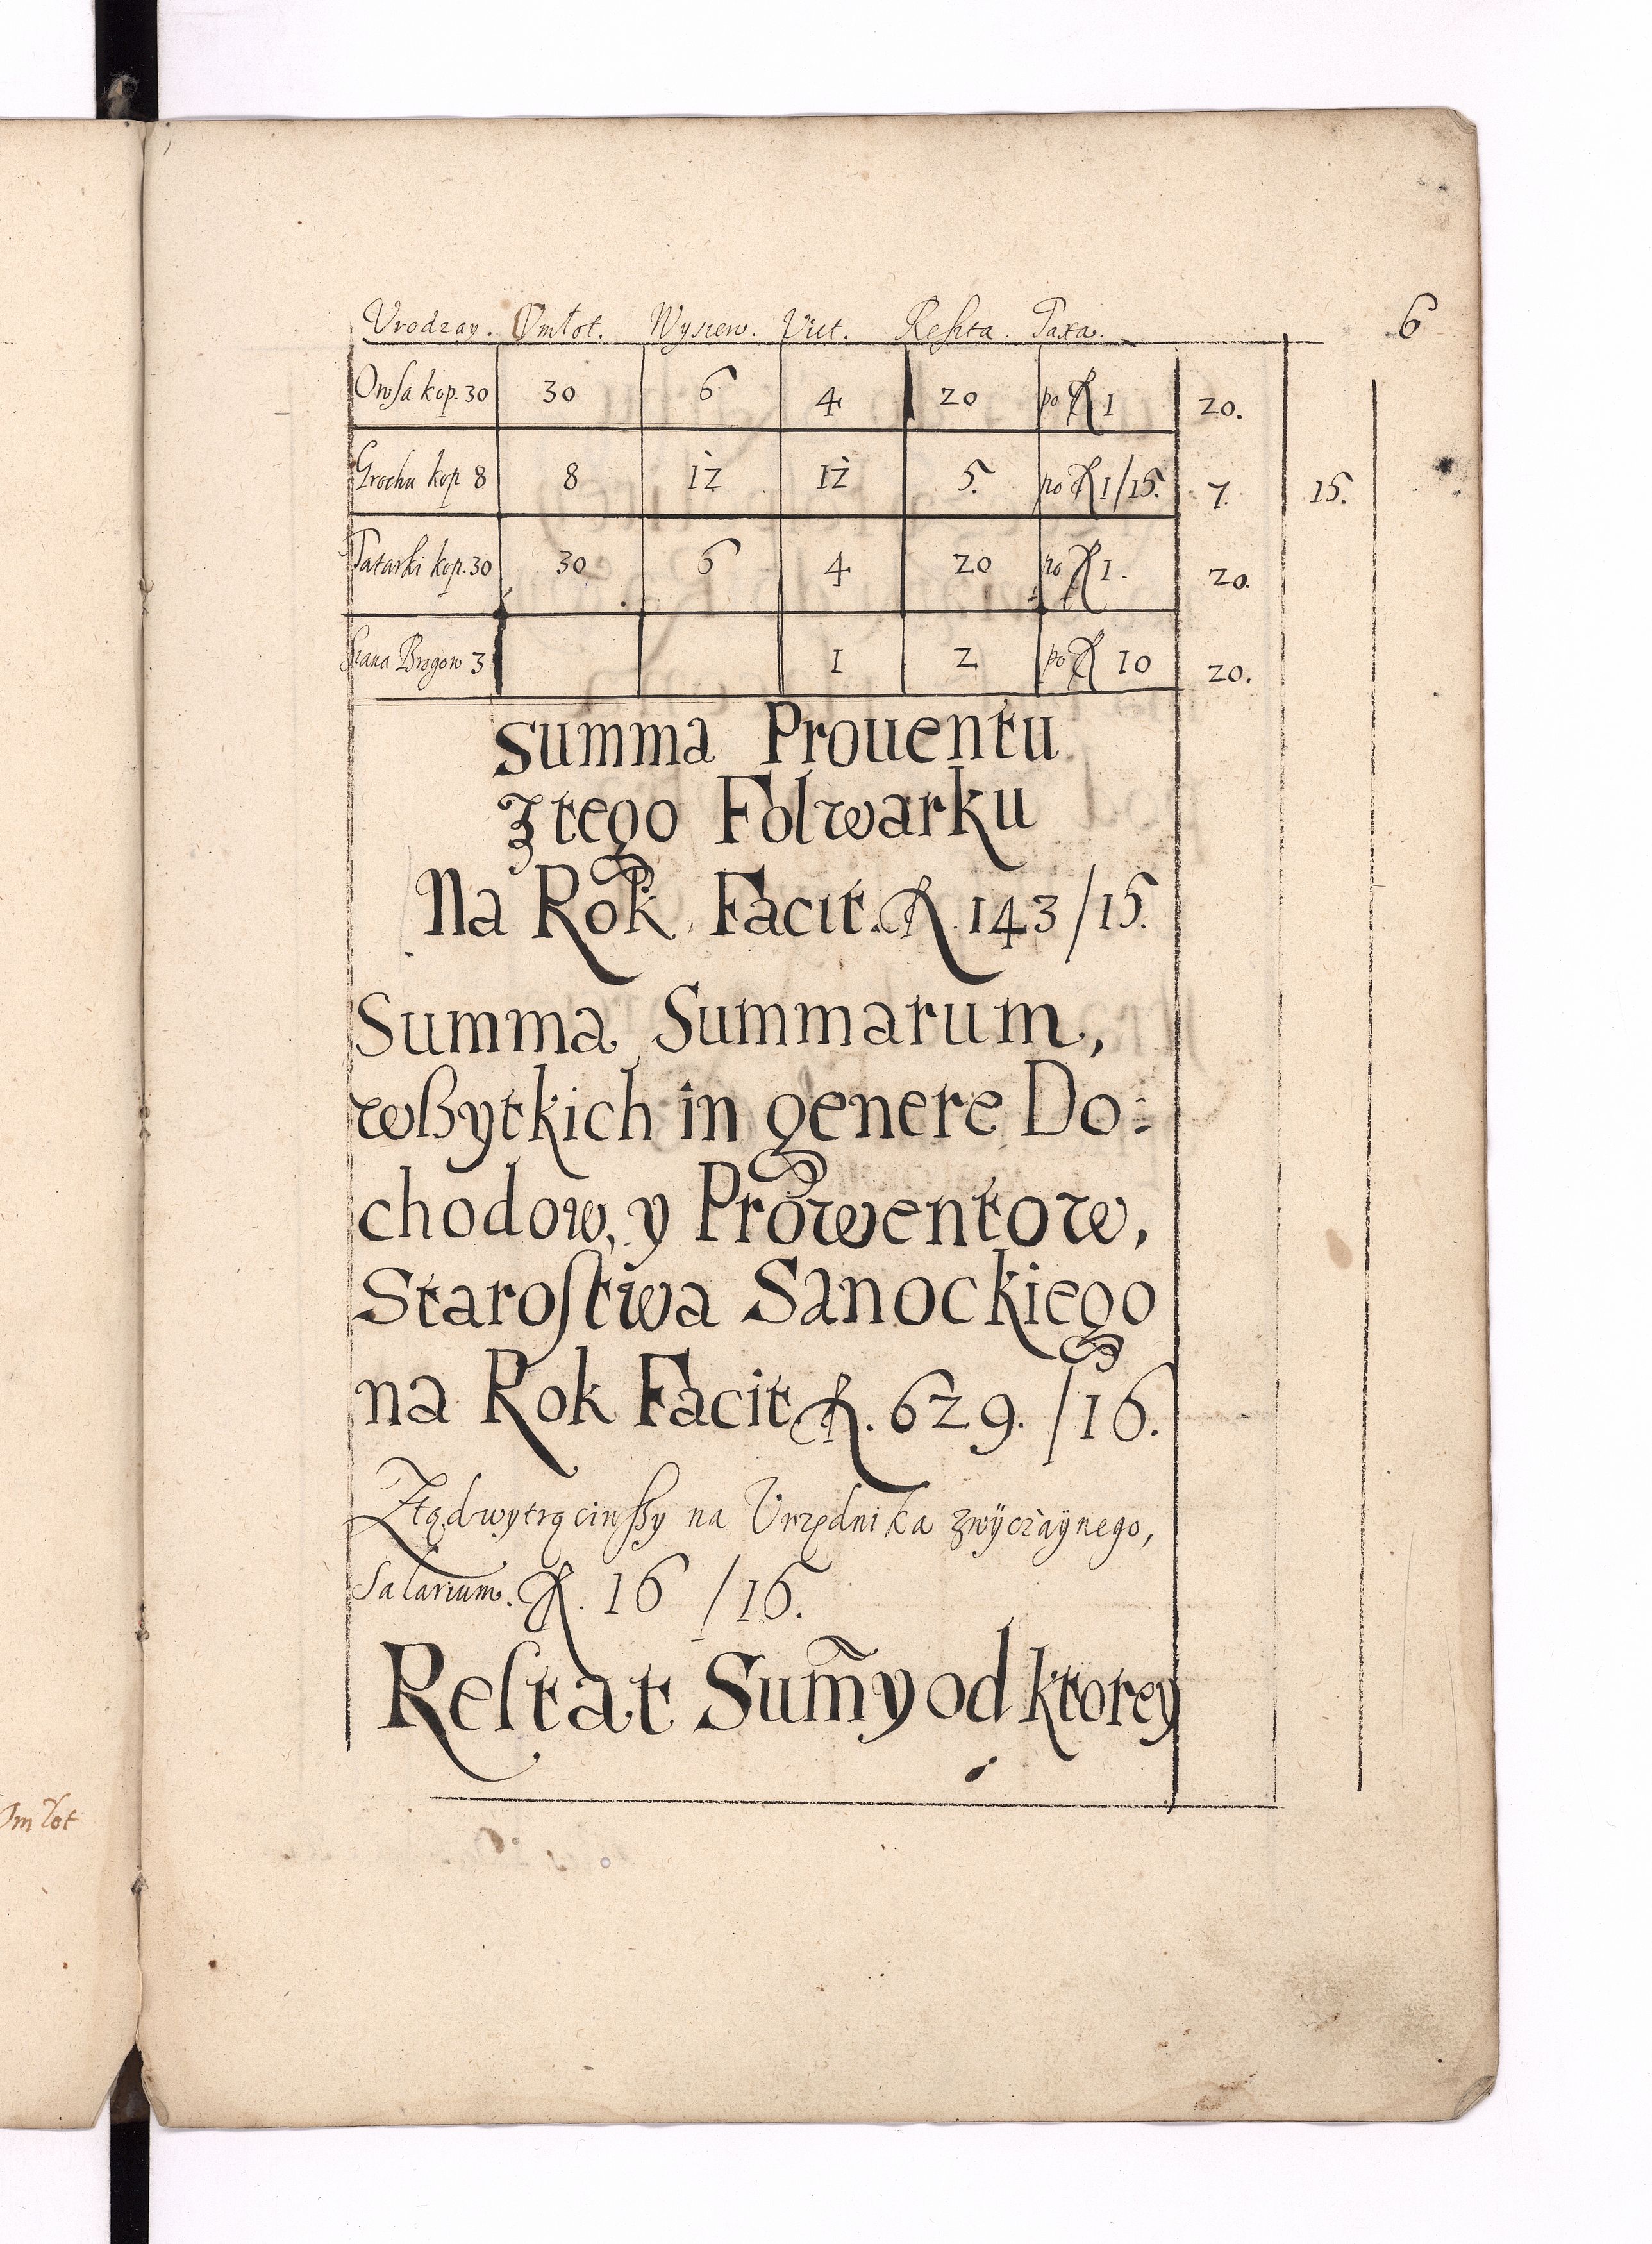 6
Vrodzay. Omłot. Wysiew. Vict. Reszta. Taxa.
Owsa kop. 30 30 6 4 20 po fl 1 20.
Grochu kop 8 8 1½ 1½ 5. po fl 1/15. 7. 15.
Tatarki kop. 30 30 6 4 20 po fl 1. 20.
Siana Brogow 3 1 2 po fl 10 20.
Summa Prouentu
z tego Folwarku
Na Rok Facit. fl. 143/15.
Summa Summarum,
wßytkich in genere Do:
chodow, y Prowentow,
Staroſtwa Sanockiego
na Rok Facit fl. 629. /16.
Ztąd wytrąciwßy na Vrzędnika zwÿczaÿnego,
Salarium. fl. 16 /16.
Reſtat Sum̃y od ktorey
Omłot